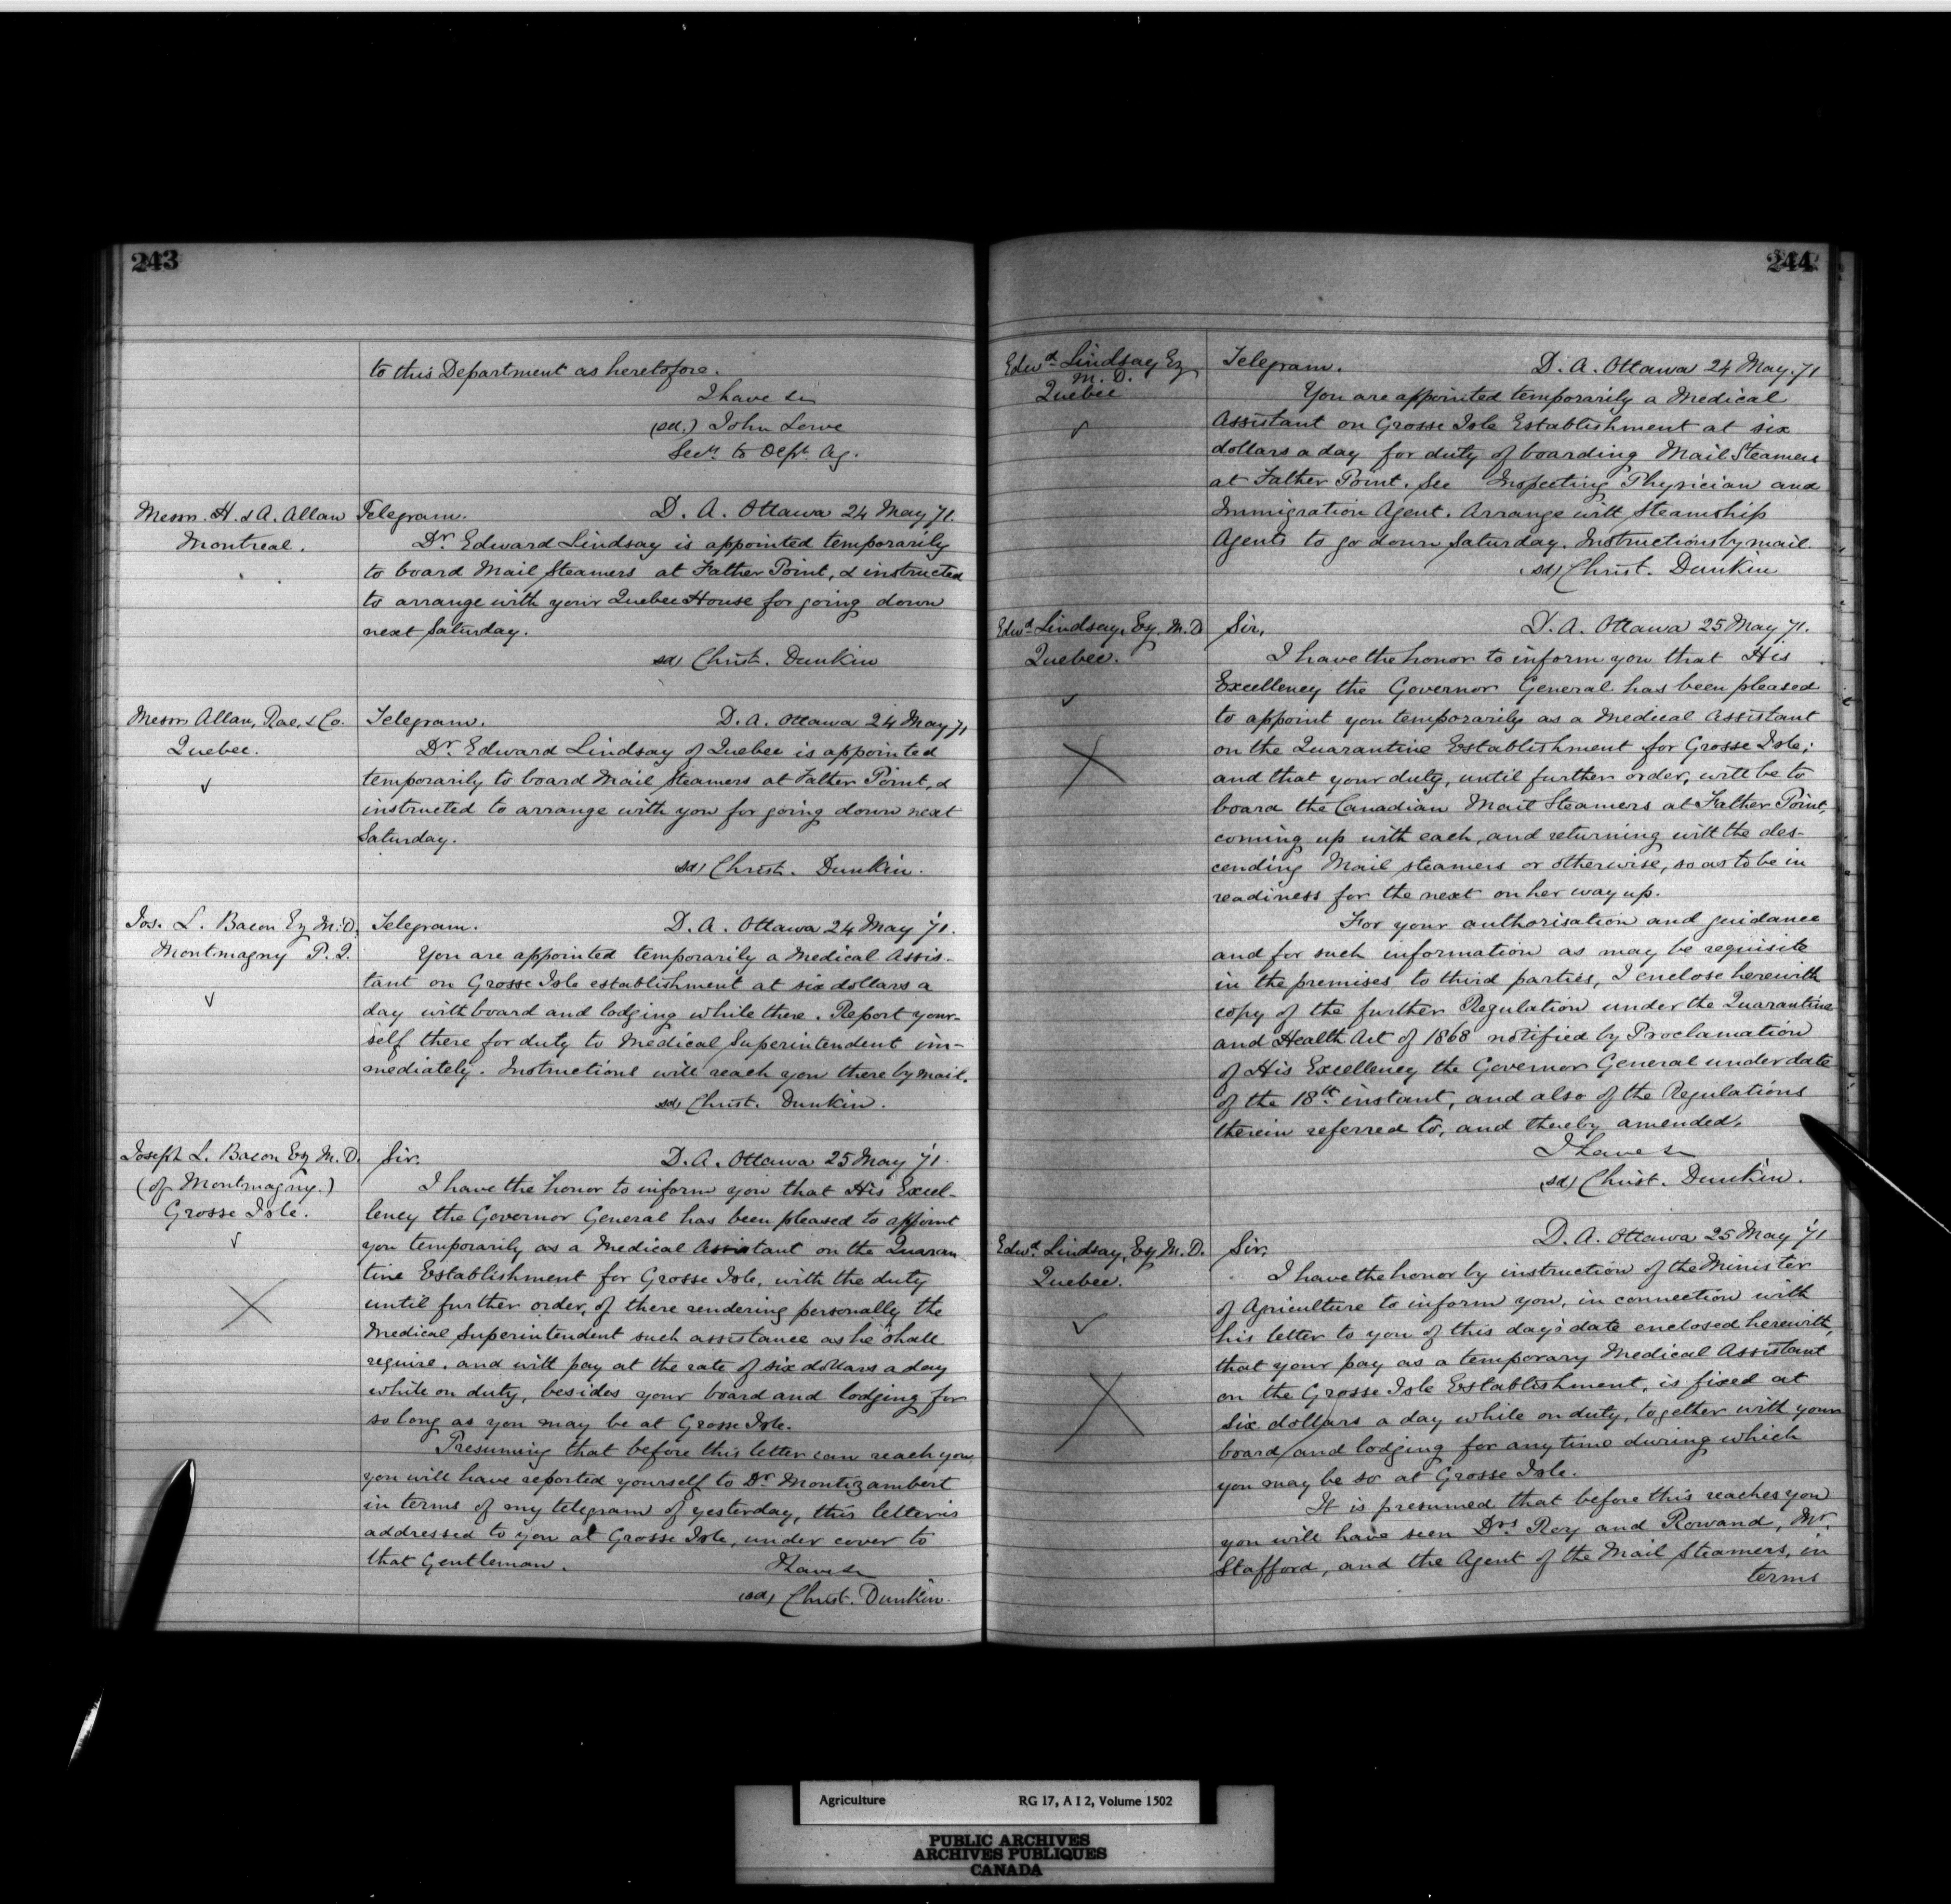 243
to this Department as heretofore.
I have &c
(sd.) John Lowe
Secy. to Dept. Ag.
Messrs. H. & A. Allan
Montreal.
Telegram. D. A. Ottawa 24 May 71.
Dr. Edward Lindsay is appointed temporarily
to board Mail Steamers at Father Point, & instructed
to arrange with your Quebec House for going down
next Saturday.
(sd) Christ. Dunkin
Messrs Allan, Rae, & Co.
Quebec.
Telegram. D. A. Ottawa 24 May 71
Dr. Edward Lindsay of Quebec is appointed
temporarily to board Mail Steamers at Father Point, &
instructed to arrange with you for going down next
Saturday.
(sd) Christ. Dunkin.
Jos. L. Bacon Esq M.D.
Montmagny P.Q.
Telegram. D. A. Ottawa 24 May '71.
You are appointed temporarily a Medical Assis-
tant on Grosse Isle establishment at six dollars a
day with board and lodging while there. Report your-
self there for duty to Medical Superintendent im-
mediately. Instructions will reach you there by mail.
(sd) Christ. Dunkin.
Joseph L. Bacon Esq M.D.
(of Montmagny.)
Grosse Isle.
Sir. D. A. Ottawa 25 May '71.
I have the honor to inform you that His Excel-
lency the Governor General has been pleased to appoint
you temporarily as a Medical Assistant on the Quaran
tine Establishment for Grosse Isle, with the duty
until further order, of there rendering personally the
Medical Superintendent such assistance as he shall
require, and with pay at the rate of six dollars a day
while on duty, besides your board and lodging for
so long as you may be at Grosse Isle.
Presuming that before this letter can reach you
you will have reported yourself to Dr. Montizambert
in terms of my telegram of yesterday, this letter is
addressed to you at Grosse Isle, under cover to
that Gentleman. I have &c
(sd) Christ. Dunkin.
244
Edwd. Lindsay Esq
M. D.
Quebec
Telegram. D. A. Ottawa 24 May. 71
You are appointed temporarily a Medical
Assistant on Grosse Isle Establishment at six
dollars a day for duty of boarding Mail Steamers
at Father Point. See Inspecting Physician and
Immigration Agent. Arrange with Steamship
Agents to go down Saturday. Instructions by mail.
(sd) Christ. Dunkin
Edwd. Lindsay, Esq. M.D.
Quebec.
Sir, D. A. Ottawa 25 May 71.
I have the honor to inform you that His
Excellency the Governor General has been pleased
to appoint you temporarily as a Medical Assistant
on the Quarantine Establishment for Grosse Isle;
and that your duty, until further order, will be to
board the Canadian Mail Steamers at Father Point,
coming up with each, and returning with the des-
cending Mail steamers or otherwise, so as to be in
readiness for the next on her way up.
For your authorisation and guidance
and for such information as may be requisite
in the premises to third parties, I enclose herewith
copy of the further Regulation under the Quarantine
and Health Act of 1868 notified by Proclamation
of His Excellency the Governor General under date
of the 18th. instant, and also of the Regulations
therein referred to, and thereby amended.
I have &c
(sd) Christ. Dunkin.
Edwd. Lindsay, Esq M.D.
Quebec.
D. A. Ottawa 25 May '71
Sir,
I have the honor by instruction of the Minister
of Agriculture to inform you, in connection with
his letter to you of this day's date enclosed herewith,
that your pay as a temporary Medical Assistant
on the Grosse Isle Establishment, is fixed at
six dollars a day while on duty, together with your
board and lodging for any time during which
you may be so at Grosse Isle.
It is presumed that before this reaches you
you will have seen Drs. Roy and Rowand, Mr.
Stafford, and the Agent of the Mail Steamers, in
terms
Agriculture RG 17, A I 2, Volume 1502
PUBLIC ARCHIVES
ARCHIVES PUBLIQUES
CANADA